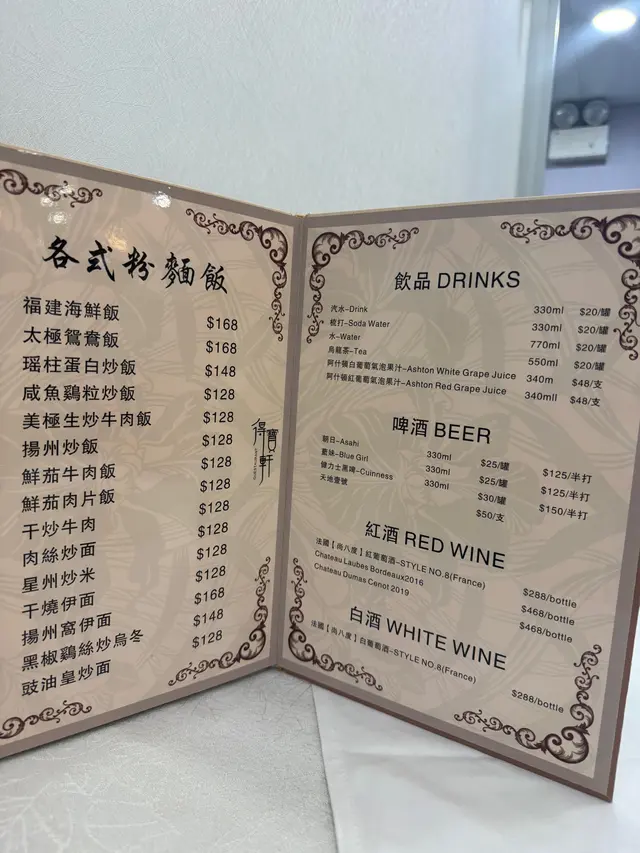 各式粉麵飯
福建海鮮飯 $168
太極鴛鴦飯 $168
瑤柱蛋白炒飯 $148
咸魚鷄粒炒飯 $128
美極生炒牛肉飯 $128
揚州炒飯 $128
鮮茄牛肉飯 $128
鮮茄肉片飯 $128
干炒牛肉 $128
肉絲炒面 $128
星州炒米 $128
干燒伊面 $128
揚州窩伊面 $168
黑椒鷄絲炒烏冬 $148
豉油皇炒面 $128
得寶軒
飲品 DRINKS
汽水-Drink 330ml $20/罐
梳打-Soda Water 330ml $20/罐
水-Water 770ml $20/罐
烏龍茶-Tea 550ml $20/罐
阿什頓白葡萄氣泡果汁-Ashton White Grape Juice 340m $48/支
阿什頓紅葡萄氣泡果汁-Ashton Red Grape Juice 340mll $48/支
啤酒 BEER
朝日-Asahi 330ml $25/罐 $125/半打
藍妹-Blue Girl 330ml $25/罐 $125/半打
健力士黑啤-Cuinness 330ml $30/罐 $150/半打
天地壹號 $50/支
紅酒 RED WINE
法國【尚八度】紅葡萄酒-STYLE NO.8(France) $288/bottle
Chateau Laubes Bordeaux2016 $468/bottle
Chateau Dumas Cenot 2019 $468/bottle
白酒 WHITE WINE
法國【尚八度】白葡萄酒-STYLE NO.8(France) $288/bottle